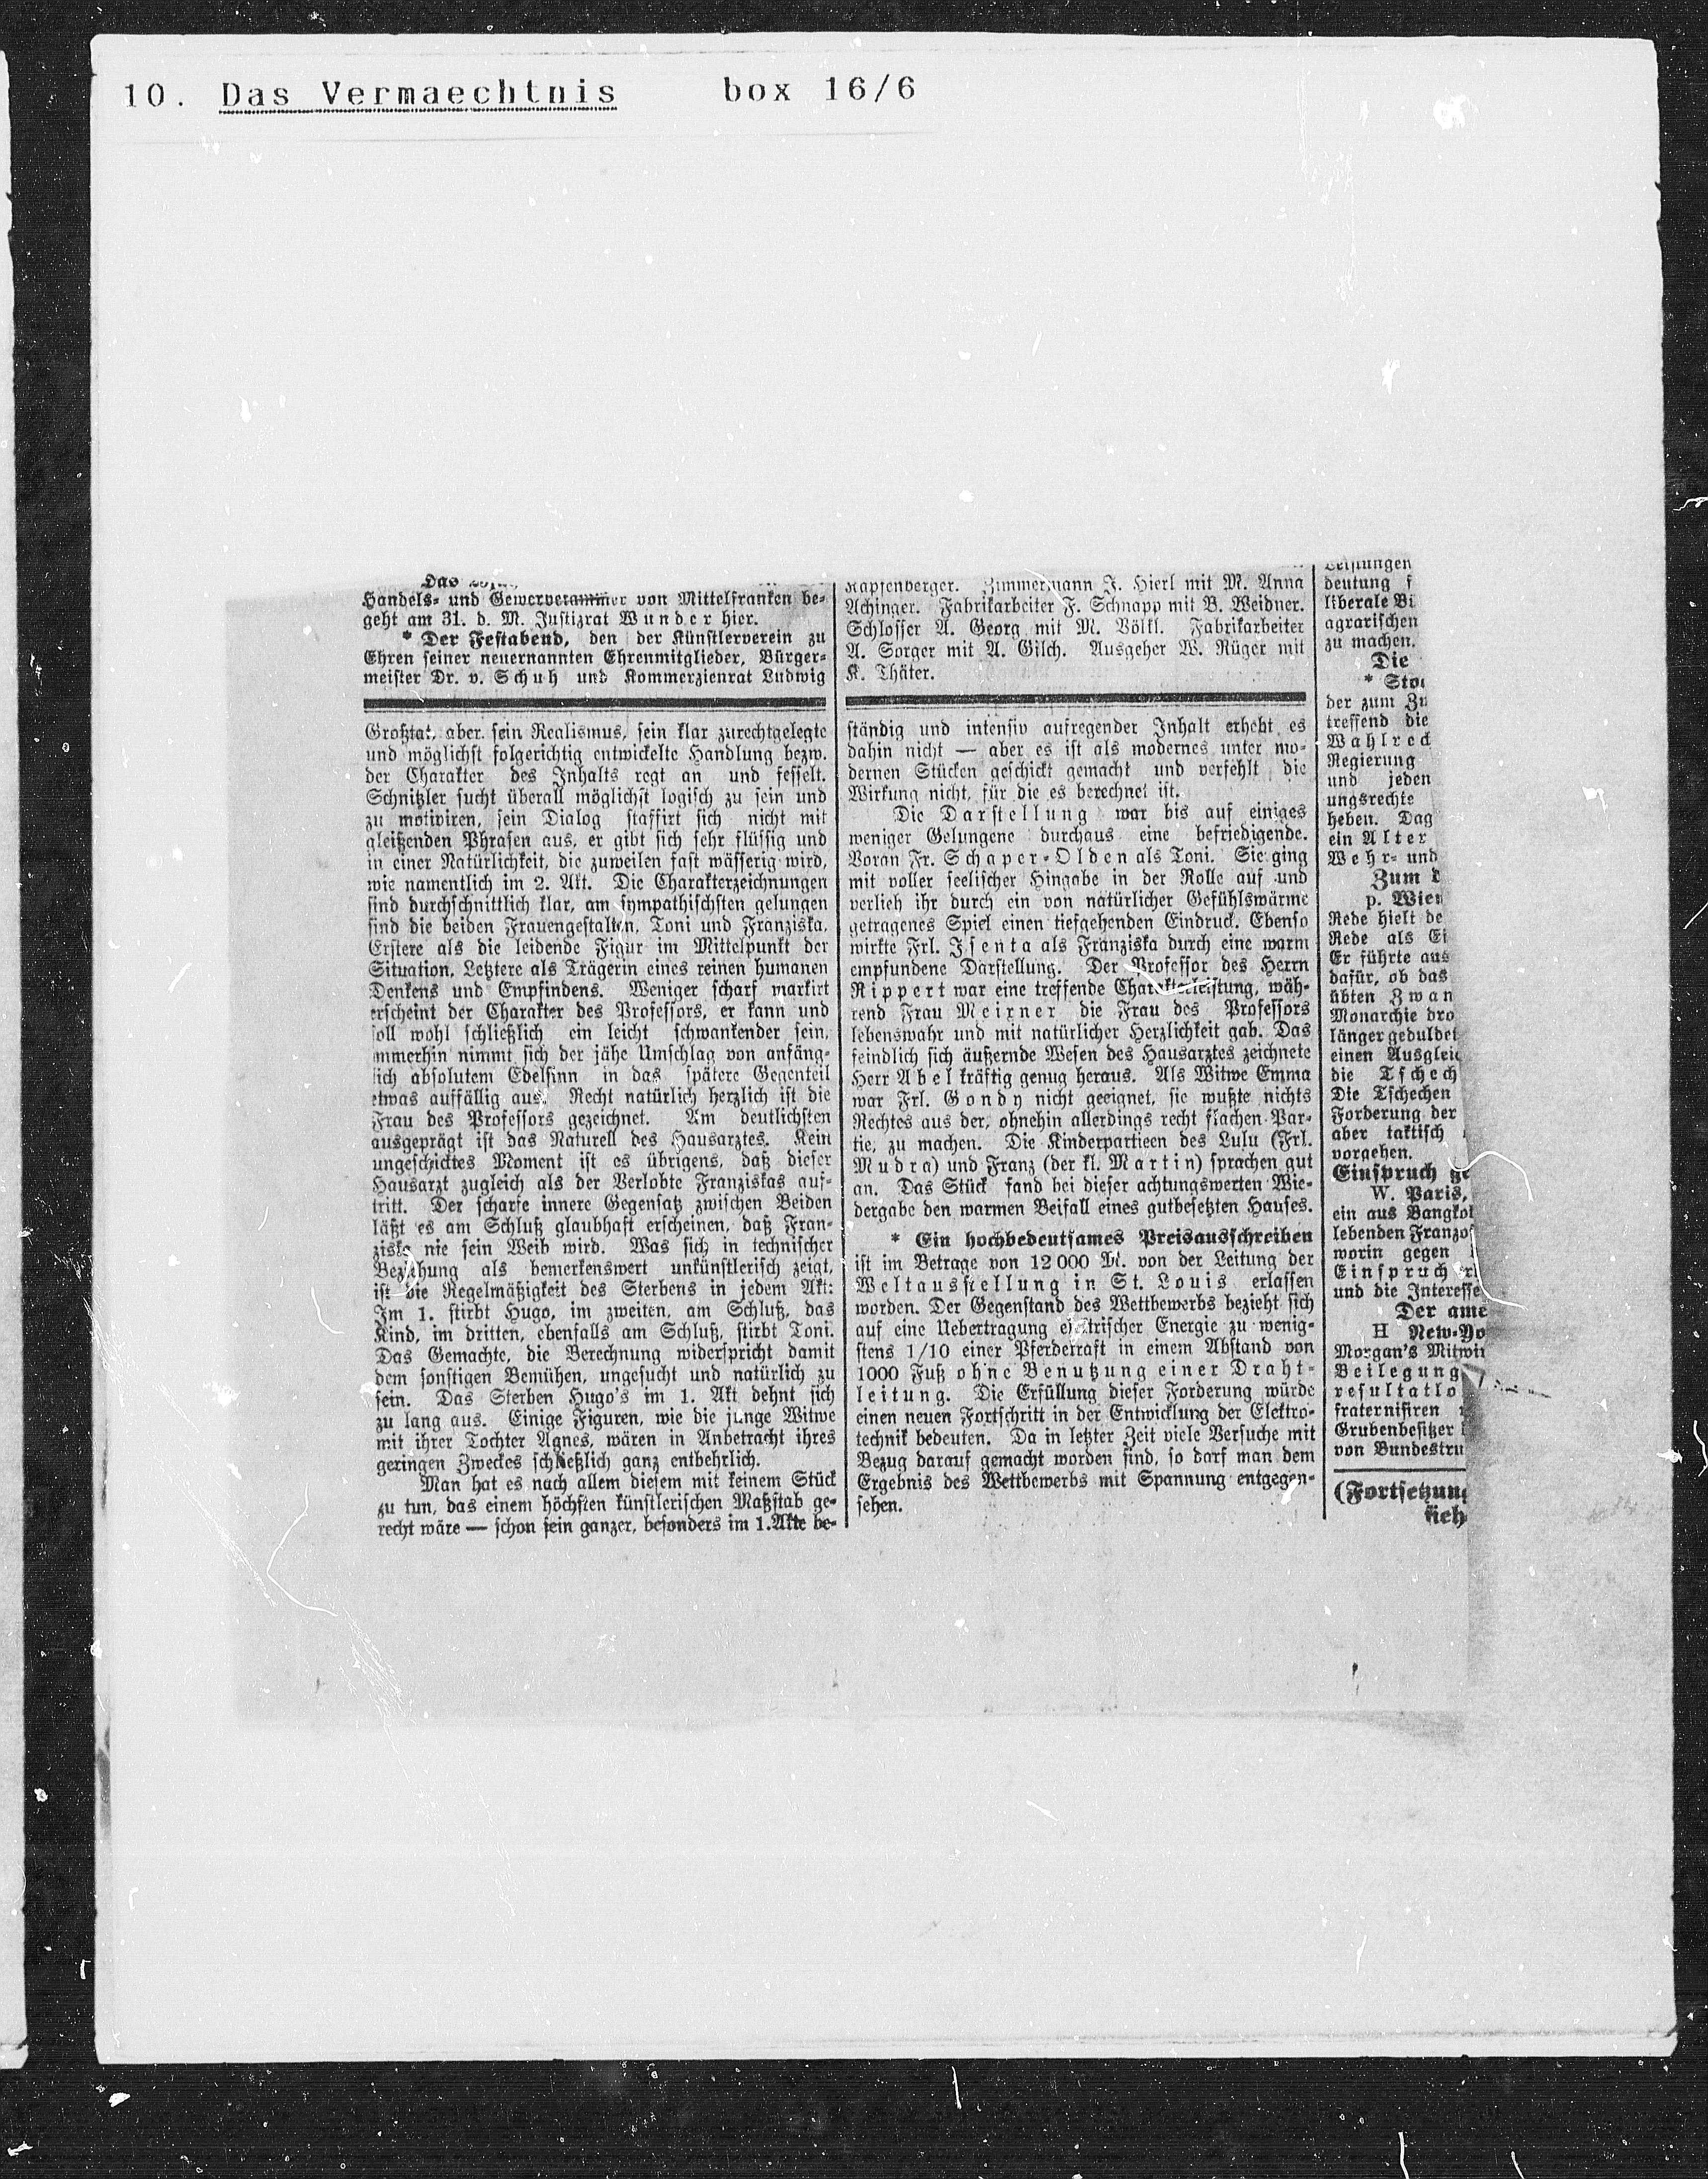 10. Das Vermaechtnis box 16/6
Das
Handels- und Gewerbekammer von Mittelfranken be-
geht am 31. d. M. Justizrat Wunder hier.
* Der Festabend, den der Künstlerverein zu
Ehren seiner neuernannten Ehrenmitglieder, Bürger-
meister Dr. v. Schuh und Kommerzienrat Ludwig
Großtat, aber sein Realismus, sein klar zurechtgelegte
und möglichst folgerichtig entwickelte Handlung bezw.
der Charakter des Inhalts regt an und fesselt.
Schnitzler sucht überall möglichst logisch zu sein und
zu motiviren, sein Dialog staffirt sich nicht mit
gleißenden Phrasen aus, er gibt sich sehr flüssig und
in einer Natürlichkeit, die zuweilen fast wässerig wird,
wie namentlich im 2. Akt. Die Charakterzeichnungen
sind durchschnittlich klar, am sympathischsten gelungen
sind die beiden Frauengestalten, Toni und Franziska,
Erstere als die leidende Figur im Mittelpunkt der
Situation, Letztere als Trägerin eines reinen humanen
Denkens und Empfindens. Weniger scharf markirt
erscheint der Charakter des Professors, er kann und
soll wohl schließlich ein leicht schwankender sein,
immerhin nimmt sich der jähe Umschlag von anfäng-
lich absolutem Edelsinn in das spätere Gegenteil
etwas auffällig aus. Recht natürlich herzlich ist die
Frau des Professors gezeichnet. Am deutlichsten
ausgeprägt ist das Naturell des Hausarztes. Kein
ungeschicktes Moment ist es übrigens, daß dieser
Hausarzt zugleich als der Verlobte Franziskas auf-
tritt. Der scharfe innere Gegensatz zwischen Beiden
läßt es am Schluß glaubhaft erscheinen, daß Fran-
ziska nie sein Weib wird. Was sich in technischer
Beziehung als bemerkenswert unkünstlerisch zeigt,
ist die Regelmäßigkeit des Sterbens in jedem Akt:
Im 1. stirbt Hugo, im zweiten, am Schluß, das
Kind, im dritten, ebenfalls am Schluß, stirbt Toni.
Das Gemachte, die Berechnung widerspricht damit
dem sonstigen Bemühen, ungesucht und natürlich zu
sein. Das Sterben Hugo's im 1. Akt dehnt sich
zu lang aus. Einige Figuren, wie die junge Witwe
mit ihrer Tochter Agnes, wären in Anbetracht ihres
geringen Zweckes schließlich ganz entbehrlich.
Man hat es nach allem diesem mit keinem Stück
zu tun, das einem höchsten künstlerischen Maßstab ge-
recht wäre — schon sein ganzer, besonders im 1. Akte be-
Kapfenberger. Zimmermann J. Hierl mit M. Anna
Achinger. Fabrikarbeiter F. Schnapp mit B. Weidner.
Schlosser A. Georg mit M. Völkl. Fabrikarbeiter
A. Sorger mit A. Gilch. Ausgeher W. Rüger mit
K. Thäter.
ständig und intensiv aufregender Inhalt erhebt es
dahin nicht — aber es ist als modernes unter mo-
dernen Stücken geschickt gemacht und verfehlt die
Wirkung nicht, für die es berechnet ist.
Die Darstellung war bis auf einiges
weniger Gelungene durchaus eine befriedigende.
Voran Fr. Schaper-Olden als Toni. Sie ging
mit voller seelischer Hingabe in der Rolle auf und
verlieh ihr durch ein von natürlicher Gefühlswärme
getragenes Spiel einen tiefgehenden Eindruck. Ebenso
wirkte Frl. Isenta als Franziska durch eine warm
empfundene Darstellung. Der Professor des Herrn
Rippert war eine treffende Charakterleistung, wäh-
rend Frau Meixner die Frau des Professors
lebenswahr und mit natürlicher Herzlichkeit gab. Das
feindlich sich äußernde Wesen des Hausarztes zeichnete
Herr Abel kräftig genug heraus. Als Witwe Emma
war Frl. Gondy nicht geeignet, sie wußte nichts
Rechtes aus der, ohnehin allerdings recht flachen Par-
tie, zu machen. Die Kinderpartieen des Lulu (Frl.
Mudra) und Franz (der kl. Martin) sprachen gut
an. Das Stück fand bei dieser achtungswerten Wie-
dergabe den warmen Beifall eines gutbesetzten Hauses.
* Ein hochbedeutsames Preisausschreiben
ist im Betrage von 12 000 M. von der Leitung der
Weltausstellung in St. Louis erlassen
worden. Der Gegenstand des Wettbewerbs bezieht sich
auf eine Uebertragung elektrischer Energie zu wenig-
stens 1/10 einer Pferderaft in einem Abstand von
1000 Fuß ohne Benutzung einer Draht-
leitung. Die Erfüllung dieser Forderung würde
einen neuen Fortschritt in der Entwicklung der Elektro-
technik bedeuten. Da in letzter Zeit viele Versuche mit
Bezug darauf gemacht worden sind, so darf man dem
Ergebnis des Wettbewerbs mit Spannung entgegen-
sehen.
Leistungen
deutung f
liberale Bi
agrarischen
zu machen.
Die
* Sto
der zum Zu
treffend die
Wahlred
Regierung
und jeden
ungsrechte
heben. Dag
ein Alter
Wehr- und
Zum
p. Wien
Rede hielt de
Rede als Ei
Er führte aus
dafür, ob das
übten Zwan
Monarchie dro
länger geduldet
einen Ausglei
die Tschech
Die Tschechen
Forderung der
aber taktisch
vorgehen.
Einspruch ge
W. Paris,
ein aus Bangkok
lebenden Franzo
worin gegen
Einspruch
und die Interesse
Der ame
H New-Yo
Morgan's Mitwi
Beilegung
resultatlo
fraternisiren
Grubenbesitzer
von Bundestru
(Fortsetzung
sieh